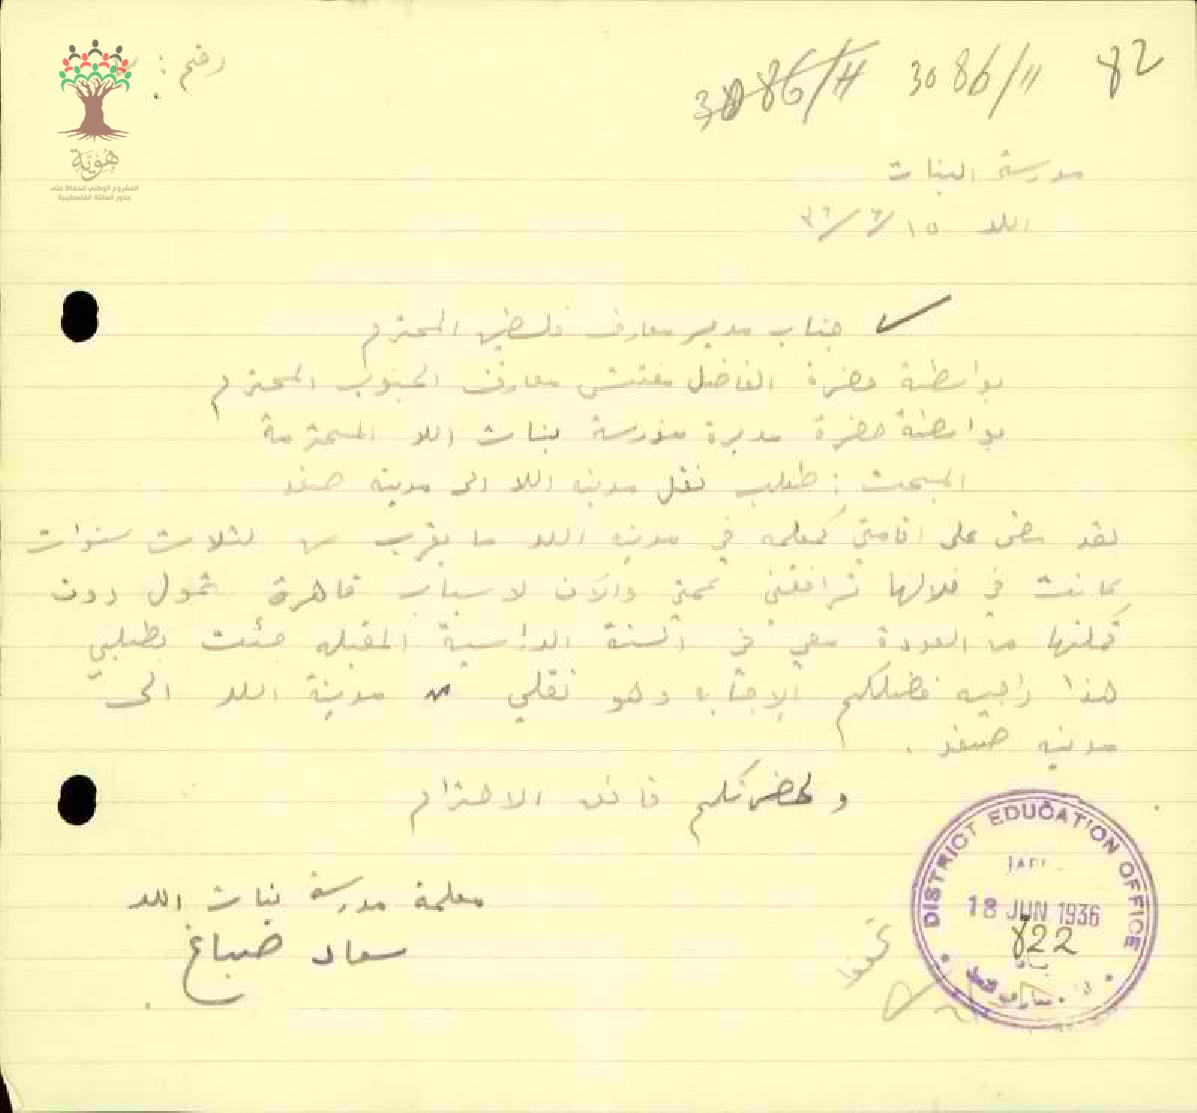 رقم :
3086/11 3086/11 82
هُوِيَّة
المشروع الوطني للحفاظ على
جذور العائلة الفلسطينية
مدرسة البنات
اللد ١٥/٦/٣٦
جناب مدير معارف فلسطين المحترم
بواسطة حضرة الفاضل مفتش معارف الجنوب المحترم
بواسطة حضرة مديرة مدرسة بنات اللد المحترمة
المبحث : طلب نقل مدينه اللد الى مدينة صفد
لقد مضى على اقامتي كمعلمه في مدينه اللد ما يقرب من لثلاث سنوات
كانت في خلالها ترافقني عمتي والآن لاسباب قاهرة تحول دون
تمكنها من العودة معي في السنة الدراسية المقبله جئت بطلبي
هذا راجيه فضلكم الإجابه وهو نقلي من مدينة اللد الى
مدينه صفد .
ولحضرتكم فائق الاحترام
معلمة مدرسة بنات اللد
سعاد صباغ
DISTRICT EDUCATION OFFICE
18 JUN 1936
822
يافا